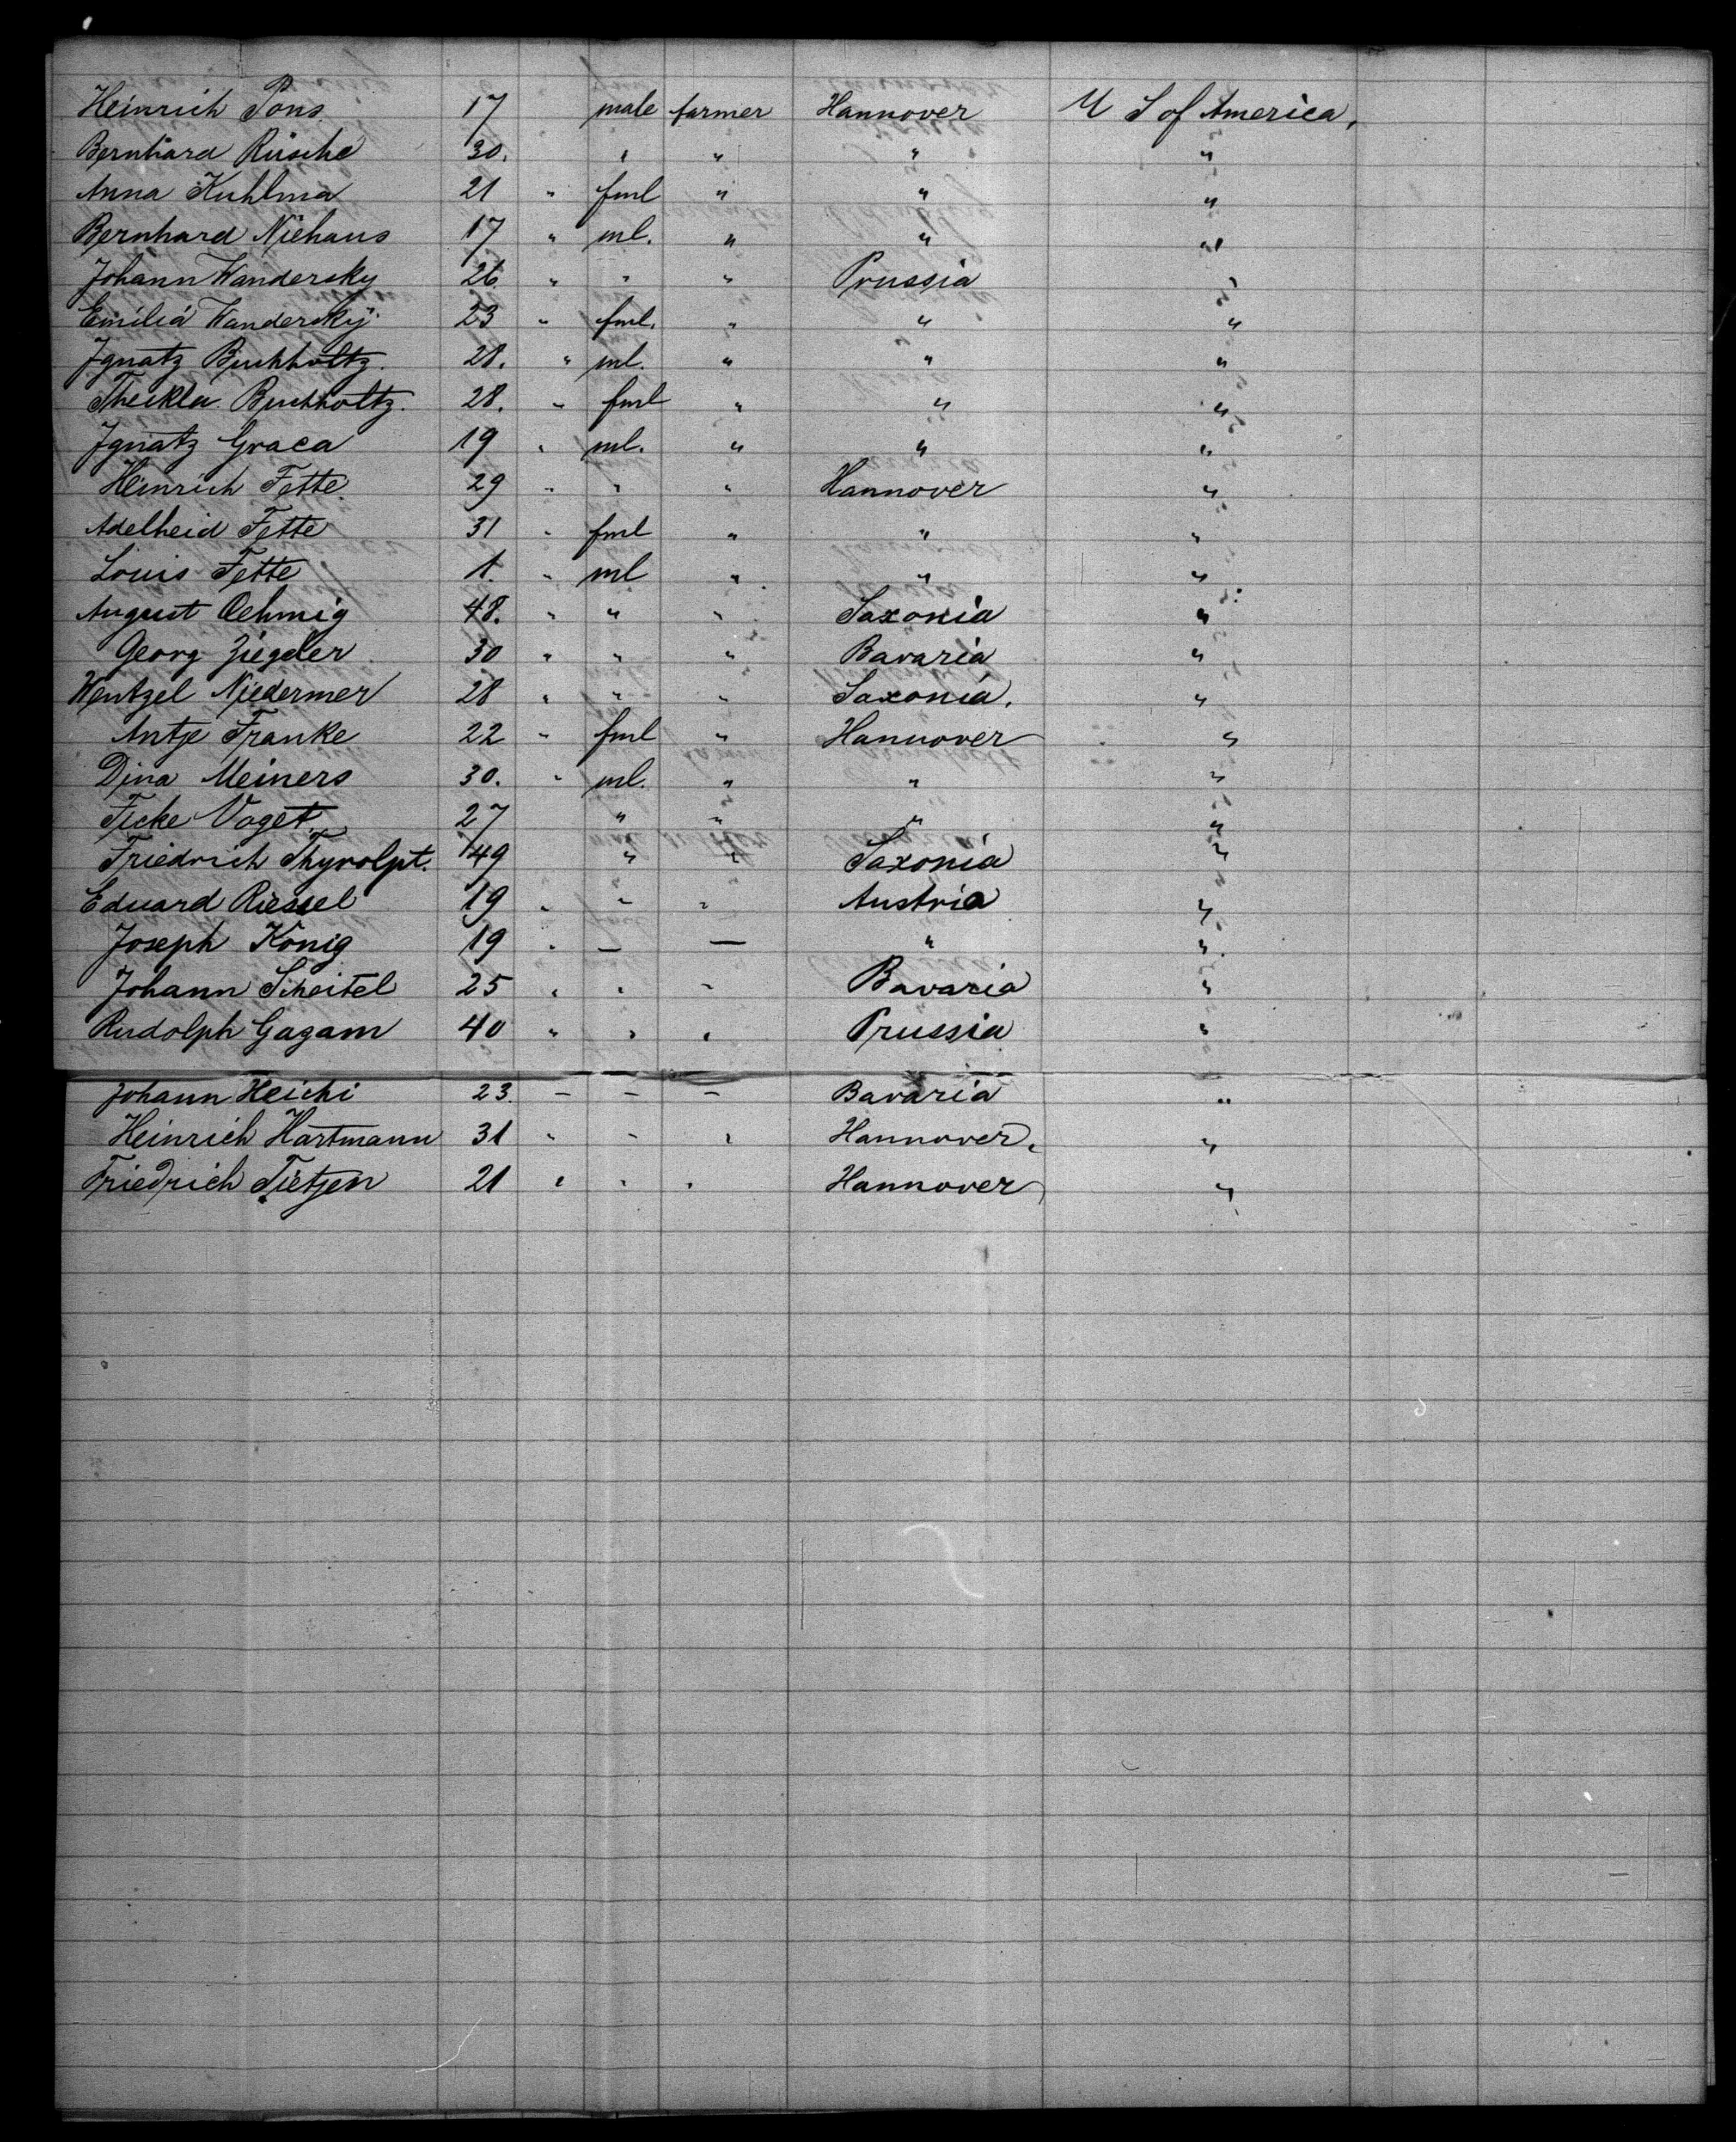 Heinrich Pons. 17 male farmer Hannover U S of America,
Bernhard Rüsche 30. " " " "
Anna Kuhlma 21 " fml " " "
Bernhard Niehaus 17 " ml. " " "
Johann Wandersky 26. " " " Prussia "
Emilia Wandersky 23 " fml. " " "
Ignatz Buchholtz. 28. " ml. " " "
Theckla Buchholtz. 28. " fml " " "
Ignatz Graca 19 " ml. " " "
Heinrich Fette. 29 " " " Hannover "
Adelheid Fette 31 " fml " " "
Louis Fette 1. " ml " " "
August Oehmig 48. " " " Saxonia "
Georg Ziegeler 30 " " " Bavaria "
Wentzel Niedermer 28 " " " Saxonia. "
Antje Franke 22 " fml " Hannover "
Dina Meiners 30. " ml. " " "
Ficke Voget 27 " " " "
Friedrich Thyrolpt. 49 " " Saxonia "
Eduard Riessel 19 " " " Austria "
Joseph König 19 " — — " "
Johann Scheitel 25 " " " Bavaria "
Rudolph Gagam 40 " " " Prussia "
Johann Heichi 23. – – – Bavaria "
Heinrich Hartmann 31 " " " Hannover. "
Friedrich Tietjen 21 " " " Hannover "